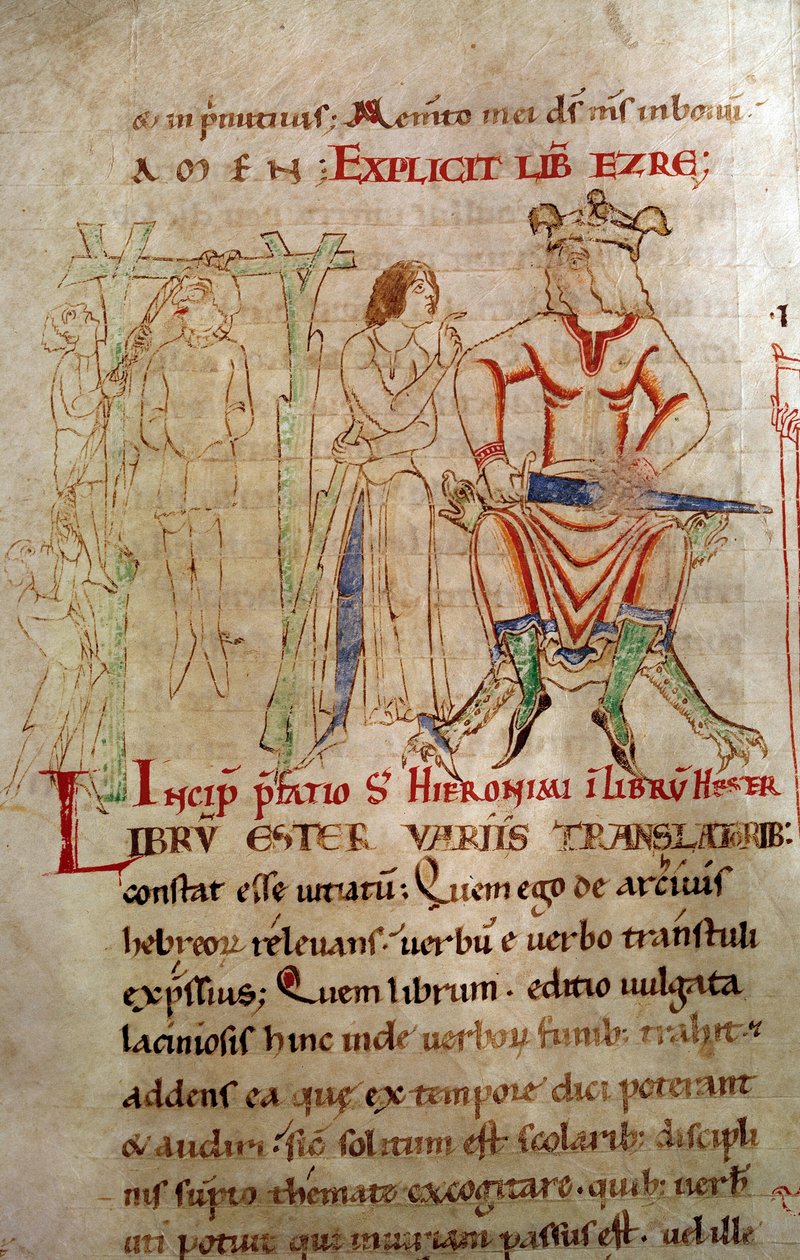 & in p̄mitiuis; Mem̄to mei ds̄ ms̄ in bonū.
AMEN :EXPLICIT LIB̄ EZRE;
INCIP̄ p̄fatio S̄ HIERONIMI ī LIBRV̄ HESTER
LIBRV̄ ESTER VARIIS TRANSLATORIB:
constat esse uitiatū; Quem ego de archiuis
hebreoꝝ releuans. uerbū e uerbo transtuli
exp̄ssius; Quem librum. editio uulgata
laciniosis hinc inde uerboꝝ funib: trahit
addens ea quę ex tempore dici poterant
& audiri. sic̄ solitum est scolarib: discipli
nis sūpto themate excogitare. quib: uerb̄
uti potuit qui iniuriam passus est. uel ille